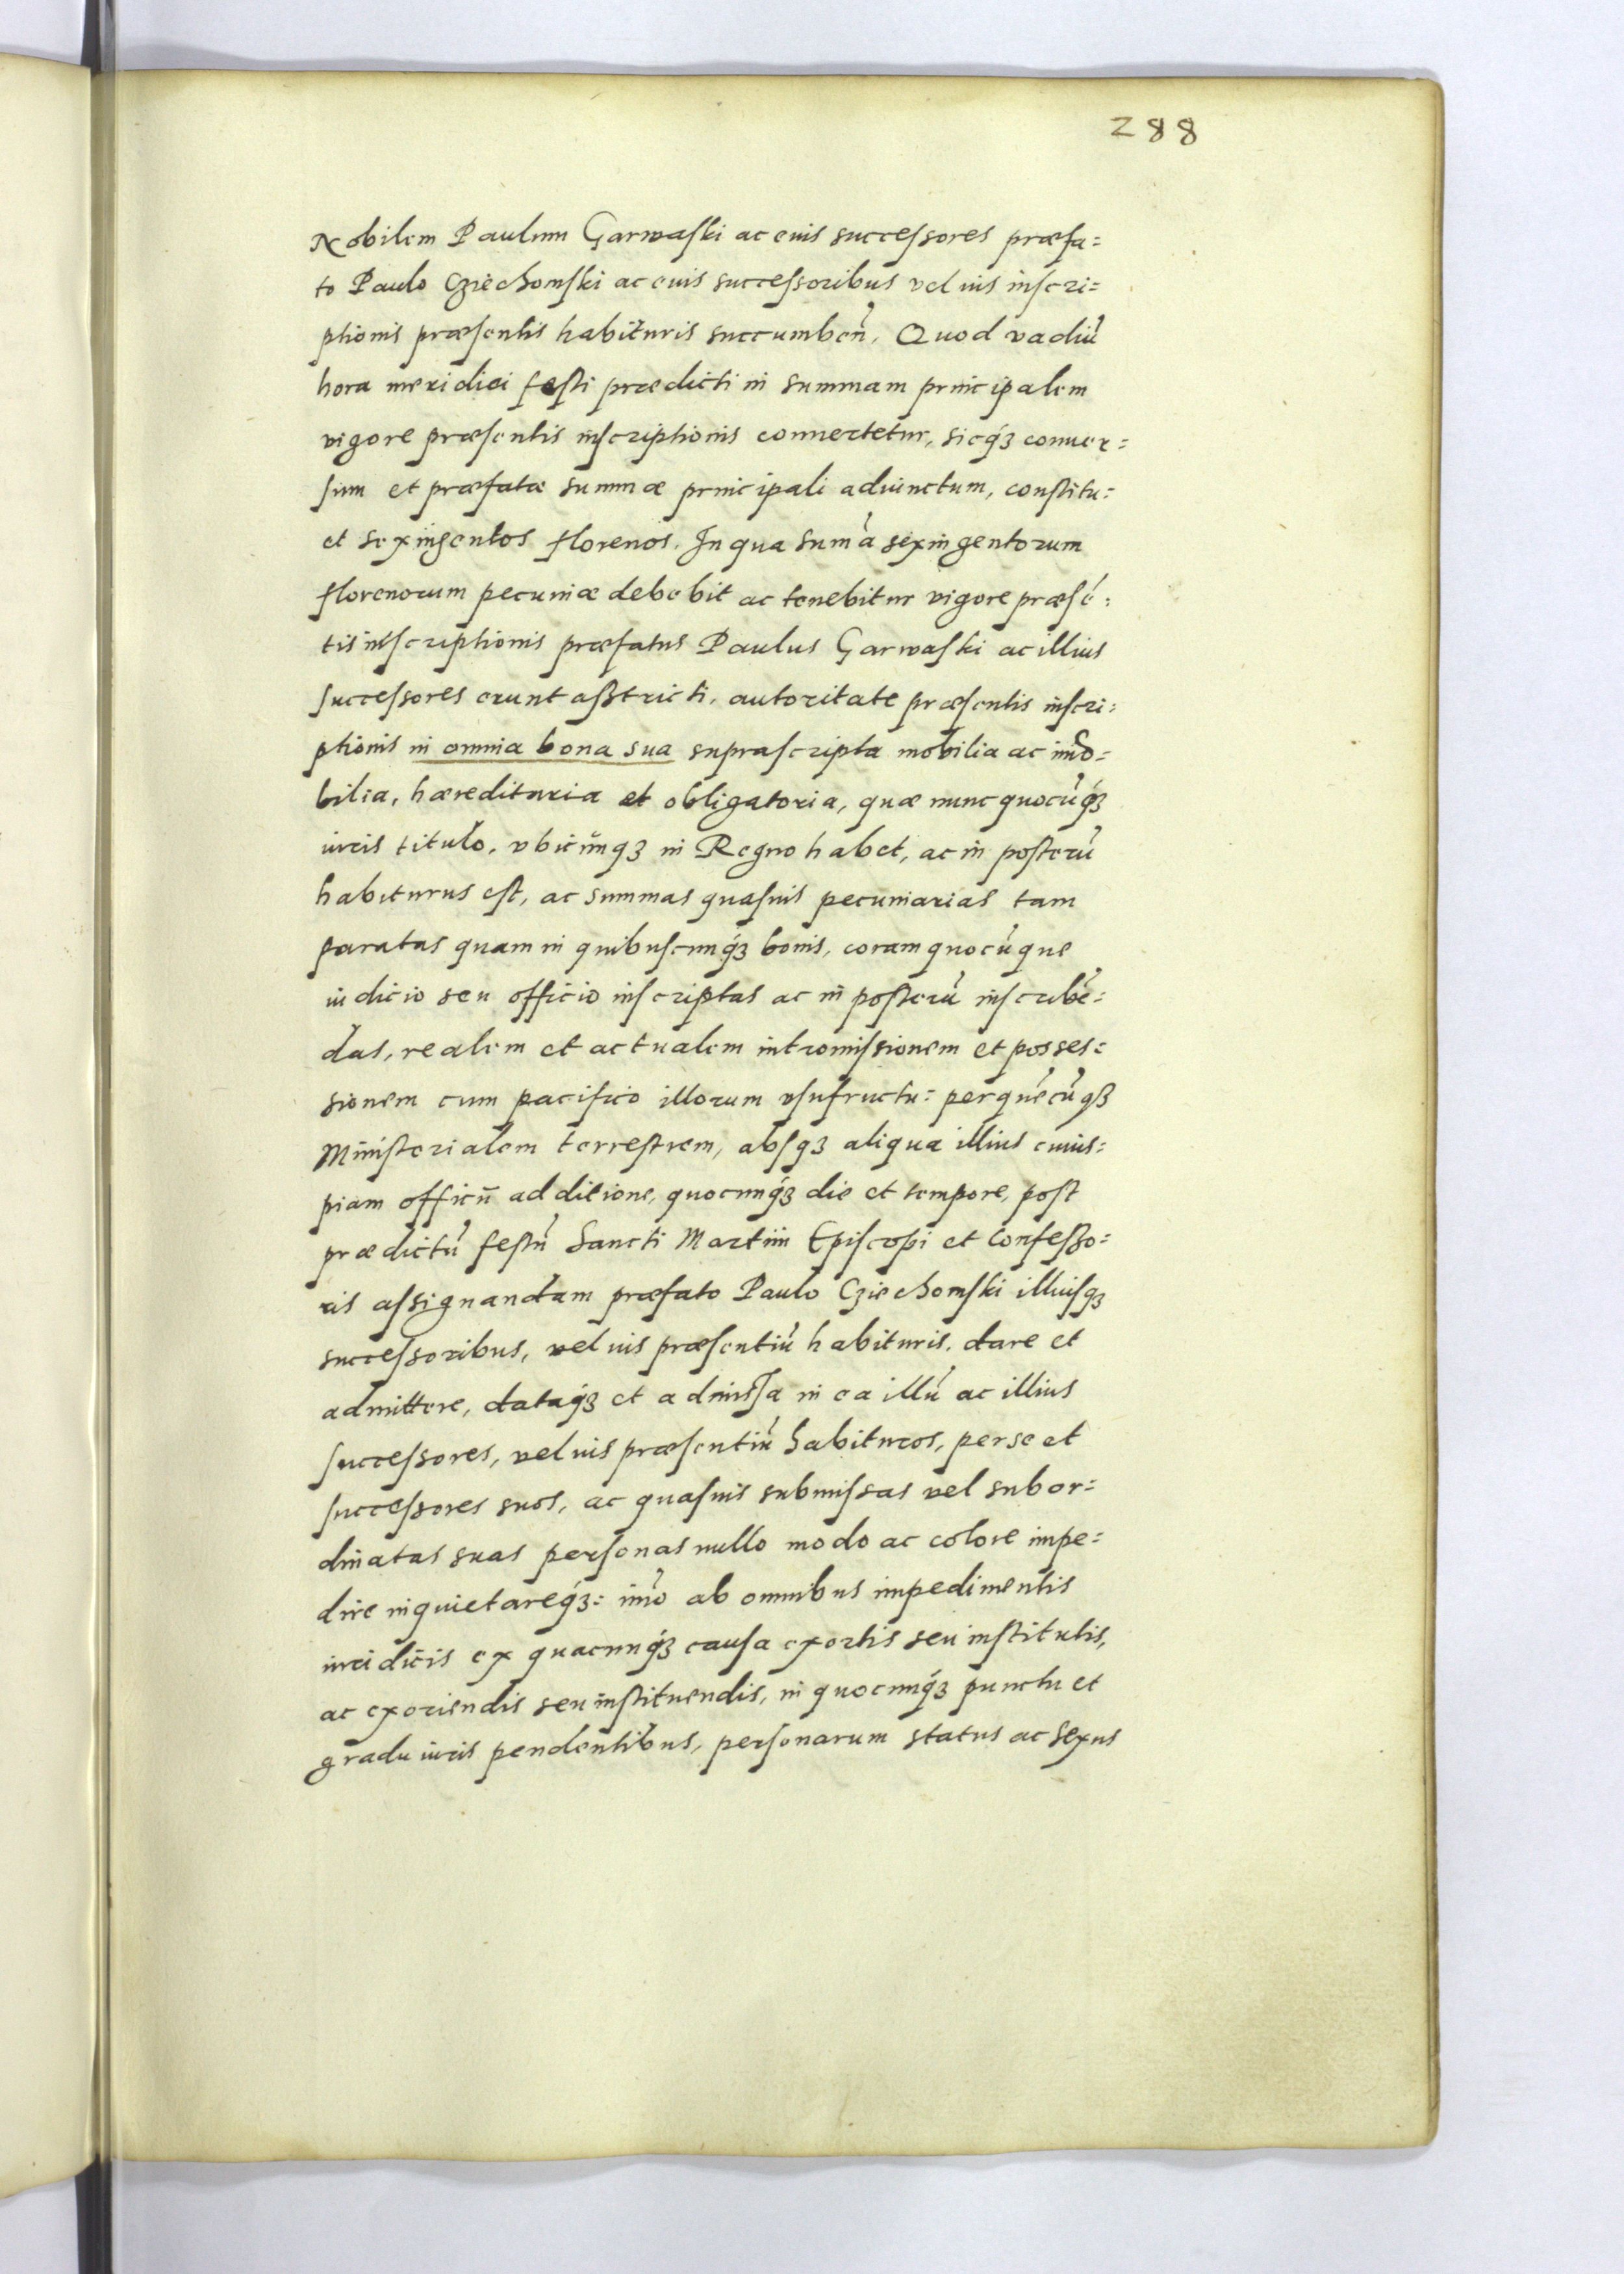 288
Nobilem Paulum Garwaſki ac euis succeſsores præfa=
to Paulo Cziechomſki ac euis succeſsoribus vel uis inſcri=
ptionis præſentis habituris succumben̉. Quod vadiũ
hora meridiei feſti prædicti in summam principalem
vigore præſentis inſcriptionis conuertetur, sicq́ꝫ conuer=
ſum et præfatæ summæ principali adiunctum, conſtitu=
et sexingentos florenos. In qua sum̃a sexingentorum
florenorum pecuniæ debebit ac tenebitur vigore præſẽ=
tis inſcriptionis præfatus Paulus Garwaſki ac illius
ſucceſsores erunt aſstricti, autoritate præſentis inſcri=
ptionis in omnia bona sua supraſcripta mobilia ac im̃o=
bilia, hæreditaria et obligatoria, quæ nunc quocũq́ꝫ
iuris titulo, vbicũnqꝫ in Regno habet, ac in poſterũ
habiturus eſt, ac summas quaſuis pecuniarias tam
paratas quam in quibuſcunq́ꝫ bonis, coram quocũque
iudicio seu officio inſcriptas ac in poſterũ inſcribẽ=
das, realem et actualem intromiſsionem et posses=
sionem cum pacifico illorum vſufructu: per quẽcũqꝫ
Miniſterialem terreſtrem, abſqꝫ aliqua illius cuius=
piam officii additione, quocunq́ꝫ die et tempore, poſt
prædictũ feſtũ Sancti Martini Epiſcopi et Confeſso=
ris aſsignandam præfato Paulo Cziechomſki illiuſqꝫ
succeſsoribus, vel uis præſentiũ habituris, dare et
admittere, dataq́ꝫ et admisſa in ea illũ ac illius
ſucceſsores, vel uis præſentiũ habituros, per se et
ſucceſsores suos, ac quaſuis submiſsas vel subor=
dinatas suas perſonas nullo modo ac colore impe=
dire inquietareq́ꝫ: im̃o ab omnibus impedimentis
iuridicis ex quacunq́ꝫ cauſa exortis seu inſtitutis,
ac exoriendis seu inſtituendis, in quocunq́ꝫ punctu et
gradu iuris pendentibus, perſonarum status ac sexus